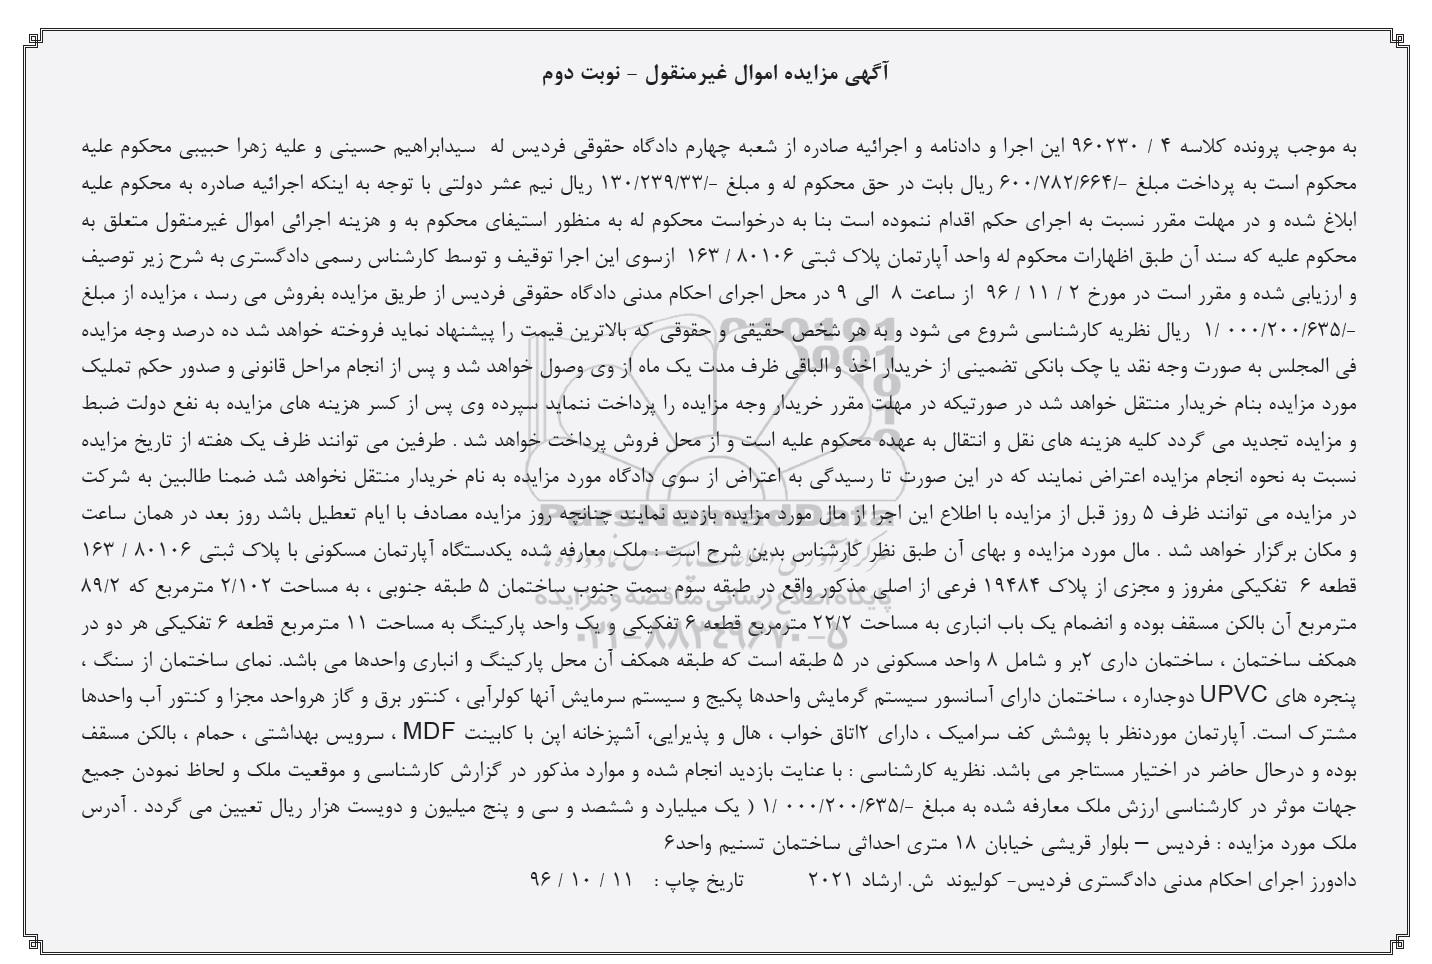 آگهی مزایده اموال غیرمنقول - نوبت دوم
به موجب پرونده کلاسه ۴ / ۹۶۰۲۳۰ این اجرا و دادنامه و اجرائیه صادره از شعبه چهارم دادگاه حقوقی فردیس له سیدابراهیم حسینی و علیه زهرا حبیبی محکوم علیه
محکوم است به پرداخت مبلغ -/۶۰۰/۷۸۲/۶۶۴ ریال بابت در حق محکوم له و مبلغ -/۱۳۰/۲۳۹/۳۳ ریال نیم عشر دولتی با توجه به اینکه اجرائیه صادره به محکوم علیه
ابلاغ شده و در مهلت مقرر نسبت به اجرای حکم اقدام ننموده است بنا به درخواست محکوم له به منظور استیفای محکوم به و هزینه اجرائی اموال غیرمنقول متعلق به
محکوم علیه که سند آن طبق اظهارات محکوم له واحد آپارتمان پلاک ثبتی ۸۰۱۰۶ / ۱۶۳ ازسوی این اجرا توقیف و توسط کارشناس رسمی دادگستری به شرح زیر توصیف
و ارزیابی شده و مقرر است در مورخ ۲ / ۱۱ / ۹۶ از ساعت ۸ الی ۹ در محل اجرای احکام مدنی دادگاه حقوقی فردیس از طریق مزایده بفروش می رسد ، مزایده از مبلغ
-/۰۰۰/۲۰۰/۶۳۵ /۱ ریال نظریه کارشناسی شروع می شود و به هر شخص حقیقی و حقوقی که بالاترین قیمت را پیشنهاد نماید فروخته خواهد شد ده درصد وجه مزایده
فی المجلس به صورت وجه نقد یا چک بانکی تضمینی از خریدار اخذ و الباقی ظرف مدت یک ماه از وی وصول خواهد شد و پس از انجام مراحل قانونی و صدور حکم تملیک
مورد مزایده بنام خریدار منتقل خواهد شد در صورتیکه در مهلت مقرر خریدار وجه مزایده را پرداخت ننماید سپرده وی پس از کسر هزینه های مزایده به نفع دولت ضبط
و مزایده تجدید می گردد کلیه هزینه های نقل و انتقال به عهده محکوم علیه است و از محل فروش پرداخت خواهد شد . طرفین می توانند ظرف یک هفته از تاریخ مزایده
نسبت به نحوه انجام مزایده اعتراض نمایند که در این صورت تا رسیدگی به اعتراض از سوی دادگاه مورد مزایده به نام خریدار منتقل نخواهد شد ضمنا طالبین به شرکت
در مزایده می توانند ظرف ۵ روز قبل از مزایده با اطلاع این اجرا از مال مورد مزایده بازدید نمایند چنانچه روز مزایده مصادف با ایام تعطیل باشد روز بعد در همان ساعت
و مکان برگزار خواهد شد . مال مورد مزایده و بهای آن طبق نظر کارشناس بدین شرح است : ملک معارفه شده یکدستگاه آپارتمان مسکونی با پلاک ثبتی ۸۰۱۰۶ / ۱۶۳
قطعه ۶ تفکیکی مفروز و مجزی از پلاک ۱۹۴۸۴ فرعی از اصلی مذکور واقع در طبقه سوم سمت جنوب ساختمان ۵ طبقه جنوبی ، به مساحت ۲/۱۰۲ مترمربع که ۸۹/۲
مترمربع آن بالکن مسقف بوده و انضمام یک باب انباری به مساحت ۲۲/۲ مترمربع قطعه ۶ تفکیکی و یک واحد پارکینگ به مساحت ۱۱ مترمربع قطعه ۶ تفکیکی هر دو در
همکف ساختمان ، ساختمان داری ۲بر و شامل ۸ واحد مسکونی در ۵ طبقه است که طبقه همکف آن محل پارکینگ و انباری واحدها می باشد. نمای ساختمان از سنگ ،
پنجره های UPVC دوجداره ، ساختمان دارای آسانسور سیستم گرمایش واحدها پکیج و سیستم سرمایش آنها کولرآبی ، کنتور برق و گاز هرواحد مجزا و کنتور آب واحدها
مشترک است. آپارتمان موردنظر با پوشش کف سرامیک ، دارای ۲اتاق خواب ، هال و پذیرایی، آشپزخانه اپن با کابینت MDF ، سرویس بهداشتی ، حمام ، بالکن مسقف
بوده و درحال حاضر در اختیار مستاجر می باشد. نظریه کارشناسی : با عنایت بازدید انجام شده و موارد مذکور در گزارش کارشناسی و موقعیت ملک و لحاظ نمودن جمیع
جهات موثر در کارشناسی ارزش ملک معارفه شده به مبلغ -/۰۰۰/۲۰۰/۶۳۵ /۱ ( یک میلیارد و ششصد و سی و پنج میلیون و دویست هزار ریال تعیین می گردد . آدرس
ملک مورد مزایده : فردیس – بلوار قریشی خیابان ۱۸ متری احداثی ساختمان تسنیم واحد۶
دادورز اجرای احکام مدنی دادگستری فردیس- کولیوند ش. ارشاد ۲۰۲۱ تاریخ چاپ : ۱۱ / ۱۰ / ۹۶
ParsNamadData
پایگاه اطلاع رسانی مناقصه و مزایده
۰۲۱-۸۸۳۴۹۶۷۰-۵